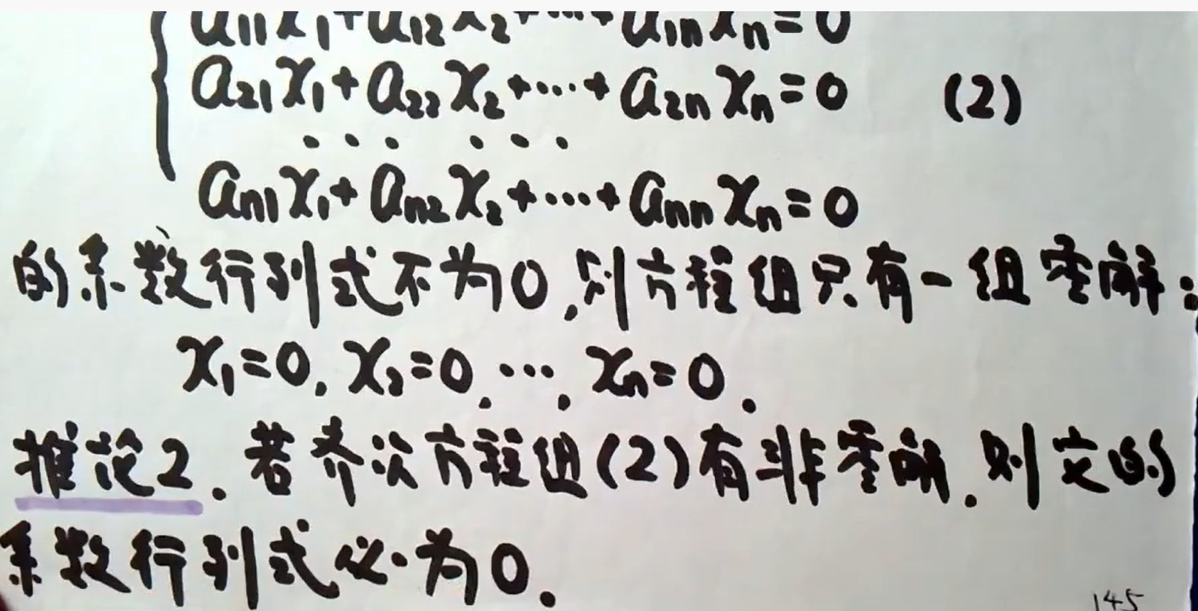 a₁₁x₁+a₁₂x₂+⋯+a₁ₙxₙ=0
a₂₁x₁+a₂₂x₂+⋯+a₂ₙxₙ=0 (2)
⋯ ⋯
aₙ₁x₁+aₙ₂x₂+⋯+aₙₙxₙ=0
的系数行列式不为0,则方程组只有一组零解:
x₁=0, x₂=0, ⋯, xₙ=0.
推论2. 若齐次方程组(2)有非零解.则它的
系数行列式必为0.
145